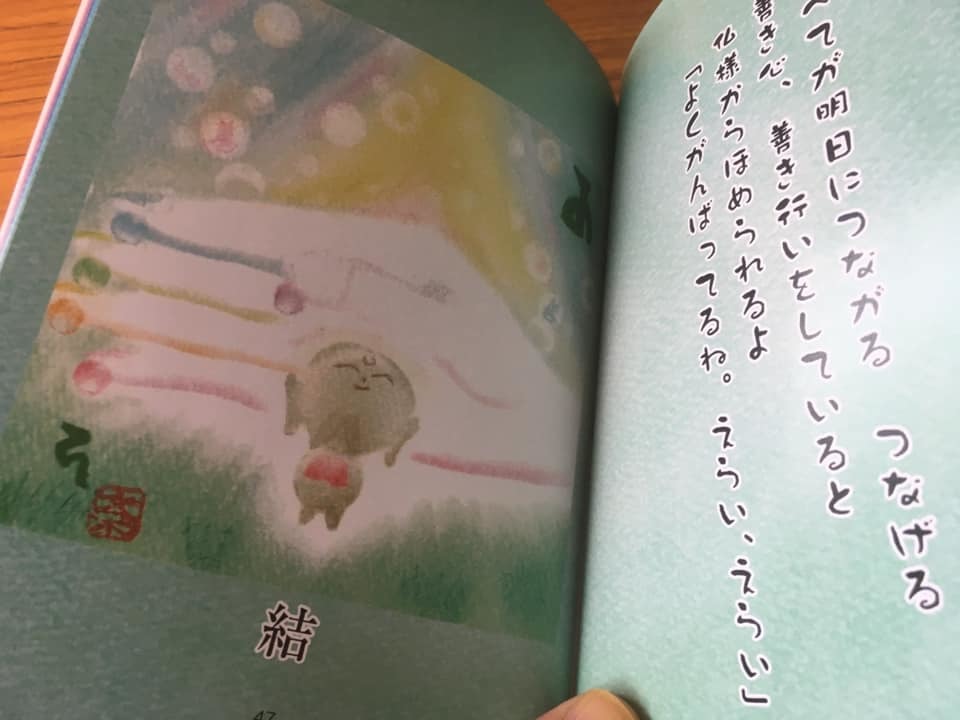 べてが明日につながる　つなげる
善き心、善き行いをしていると
仏様からほめられるよ
「よくがんばってるね。えらい、えらい」
結